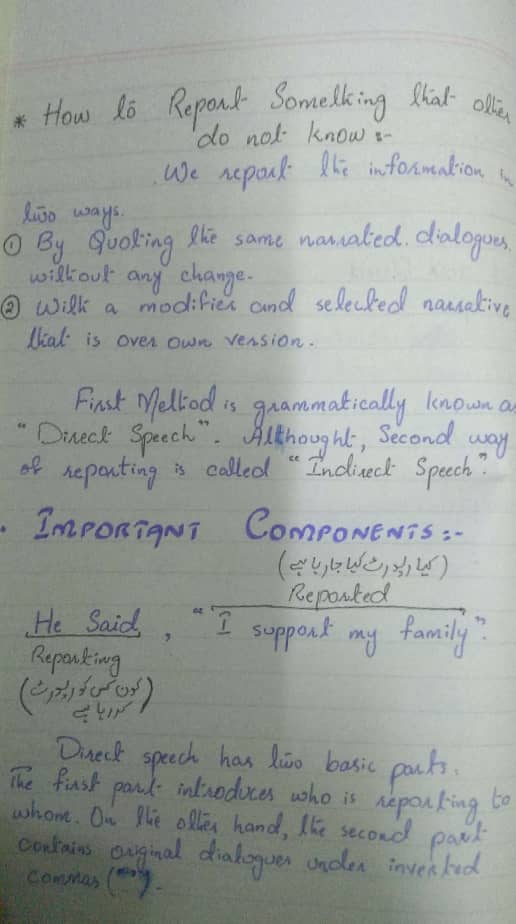 * How to Report Something that other
do not know :-
We report the information in
two ways.
① By Quoting the same narrated. dialogues,
without any change.
② With a modifier and selected narrative
that is over own version.
First Method is grammatically known as
"Direct Speech". Althought, Second way
of reporting is called "Indirect Speech".
• IMPORTANT COMPONENTS :-
(کیا رپورٹ کیا جا رہا ہے)
Reported
He Said, "I support my family".
Reporting
(کون کس کو رپورٹ
کر رہا ہے)
Direct speech has two basic parts.
The first part introduces who is reporting to
whom. On the other hand, the second part
contains original dialogues under inverted
commas (" ").